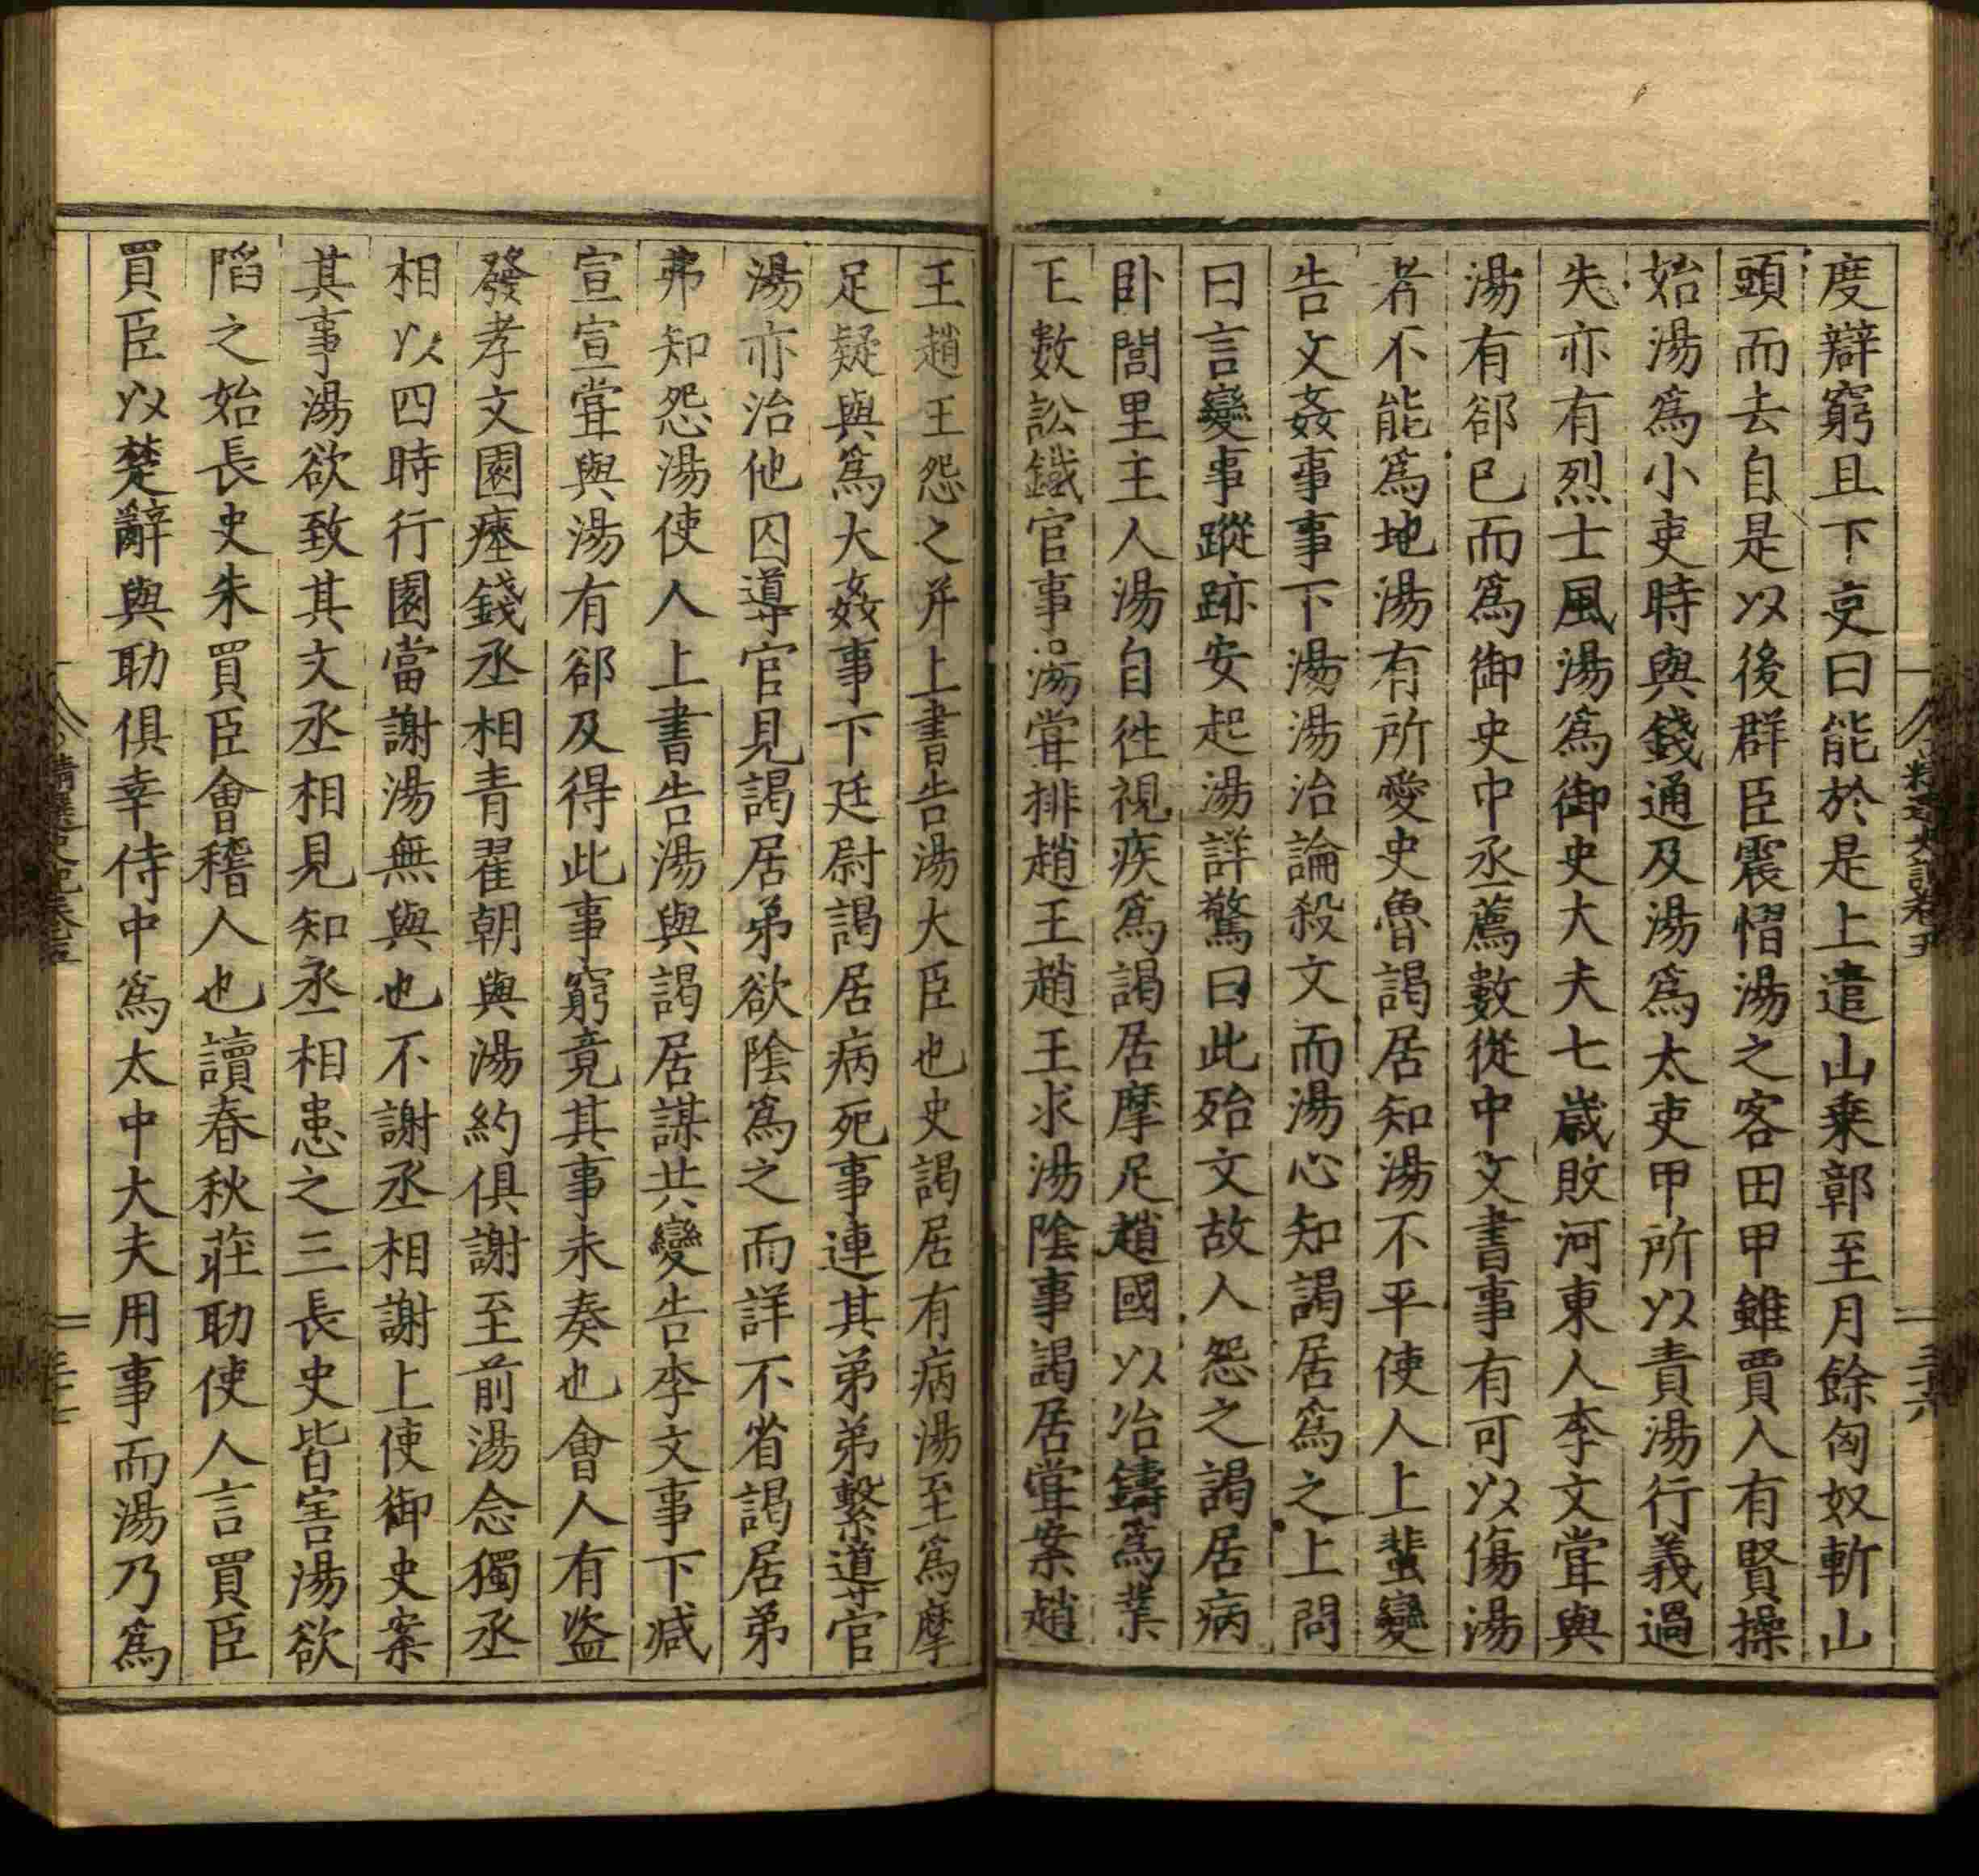 度辯窮且下吏曰能於是上遣山乗鄣至月餘匈奴斬山
頭而去自是以後群臣震慴湯之客田甲雖賈人有賢操
始湯爲小吏時與錢通及湯爲太吏甲所以責湯行義過
失亦有烈士風湯爲御史大夫七歲敗河東人李文甞與
湯有郤已而爲御史中丞薦數從中文書事有可以傷湯
者不能爲地湯有所愛史魯謁居知湯不平使人上蜚變
告文姦事事下湯湯治論殺文而湯心知謁居爲之上問
曰言變事蹤跡安起湯詳驚曰此殆文故人怨之謁居病
卧閭里主人湯自徃視疾爲謁居摩足趙國以冶鑄爲業
王數訟鐵官事湯甞排趙王趙王求湯陰事謁居甞案趙
王趙王怨之并上書告湯大臣也史謁居有病湯至爲摩
足疑與爲大姦事下廷尉謁居病死事連其弟弟繫導官
湯亦治他囚導官見謁居弟欲陰爲之而詳不省謁居弟
弗知怨湯使人上書告湯與謁居謀共變告李文事下减
宣宣甞與湯有郤及得此事窮竟其事未奏也會人有盗
發孝文園瘞錢丞相青翟朝與湯約俱謝至前湯念獨丞
相以四時行園當謝湯無與也不謝丞相謝上使御史案
其事湯欲致其文丞相見知丞相患之三長史皆害湯欲
陷之始長史朱買臣會稽人也讀春秋莊助使人言買臣
買臣以楚辭與助俱幸侍中爲太中大夫用事而湯乃爲